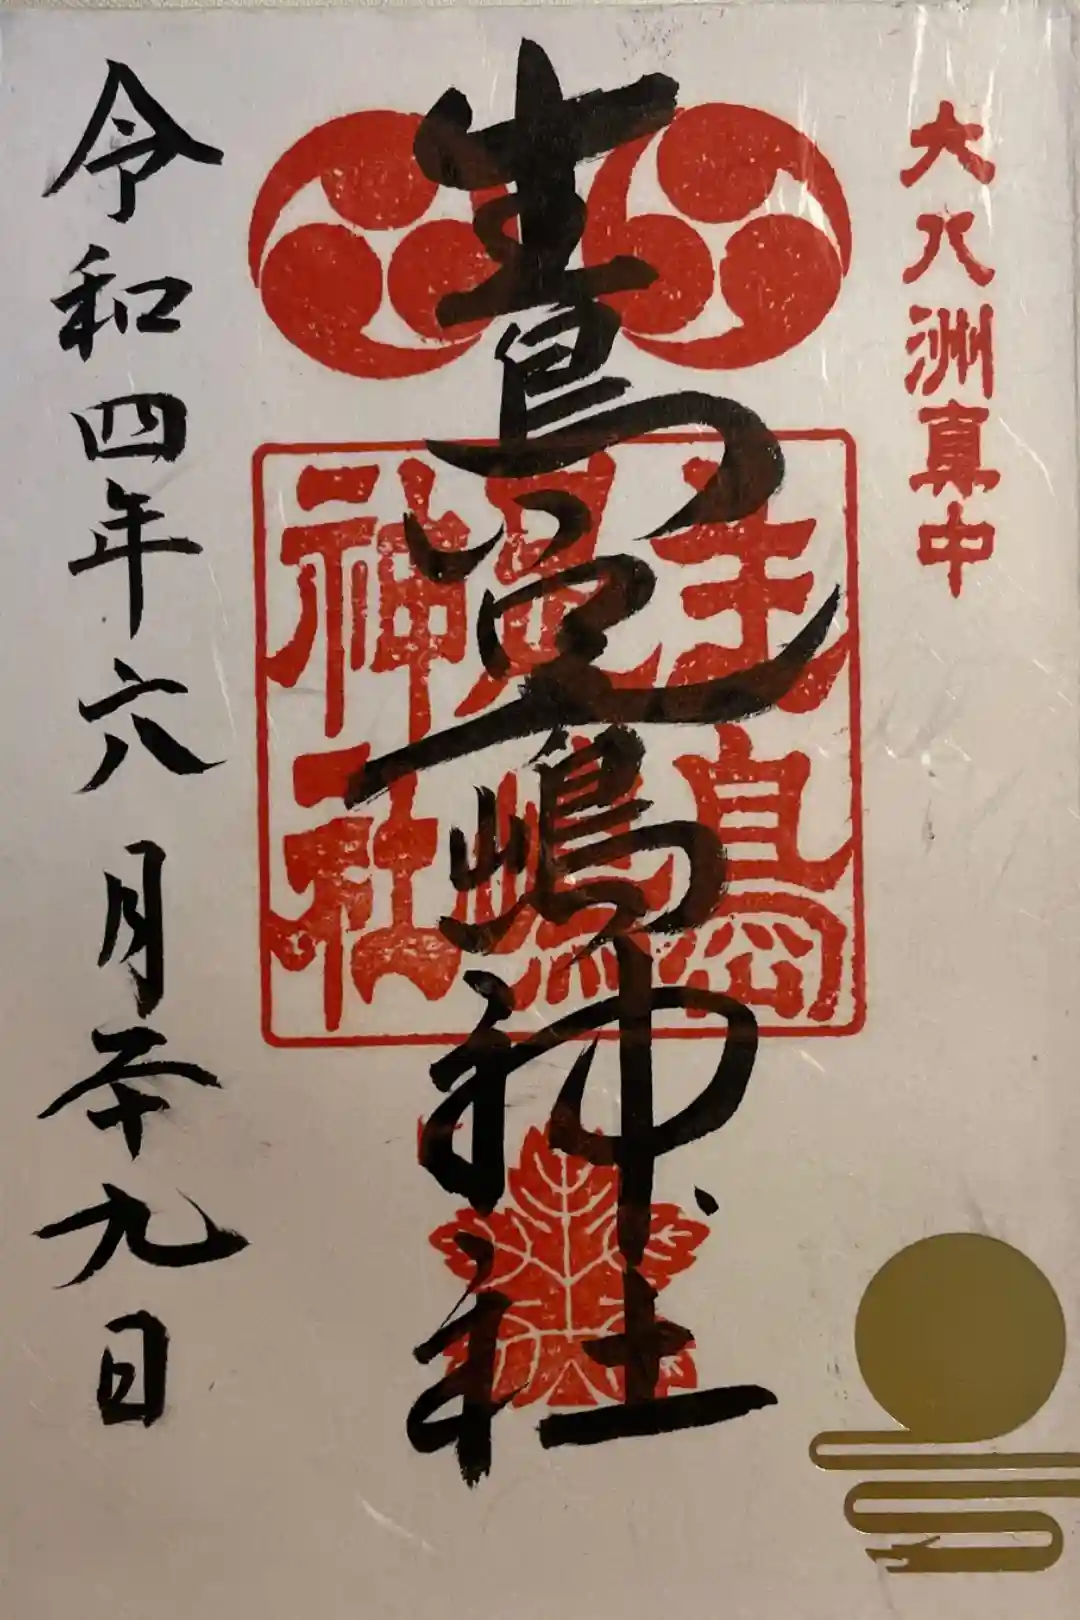 大八洲真中
生島足嶋神社
生島足嶋神社
令和四年六月二十九日